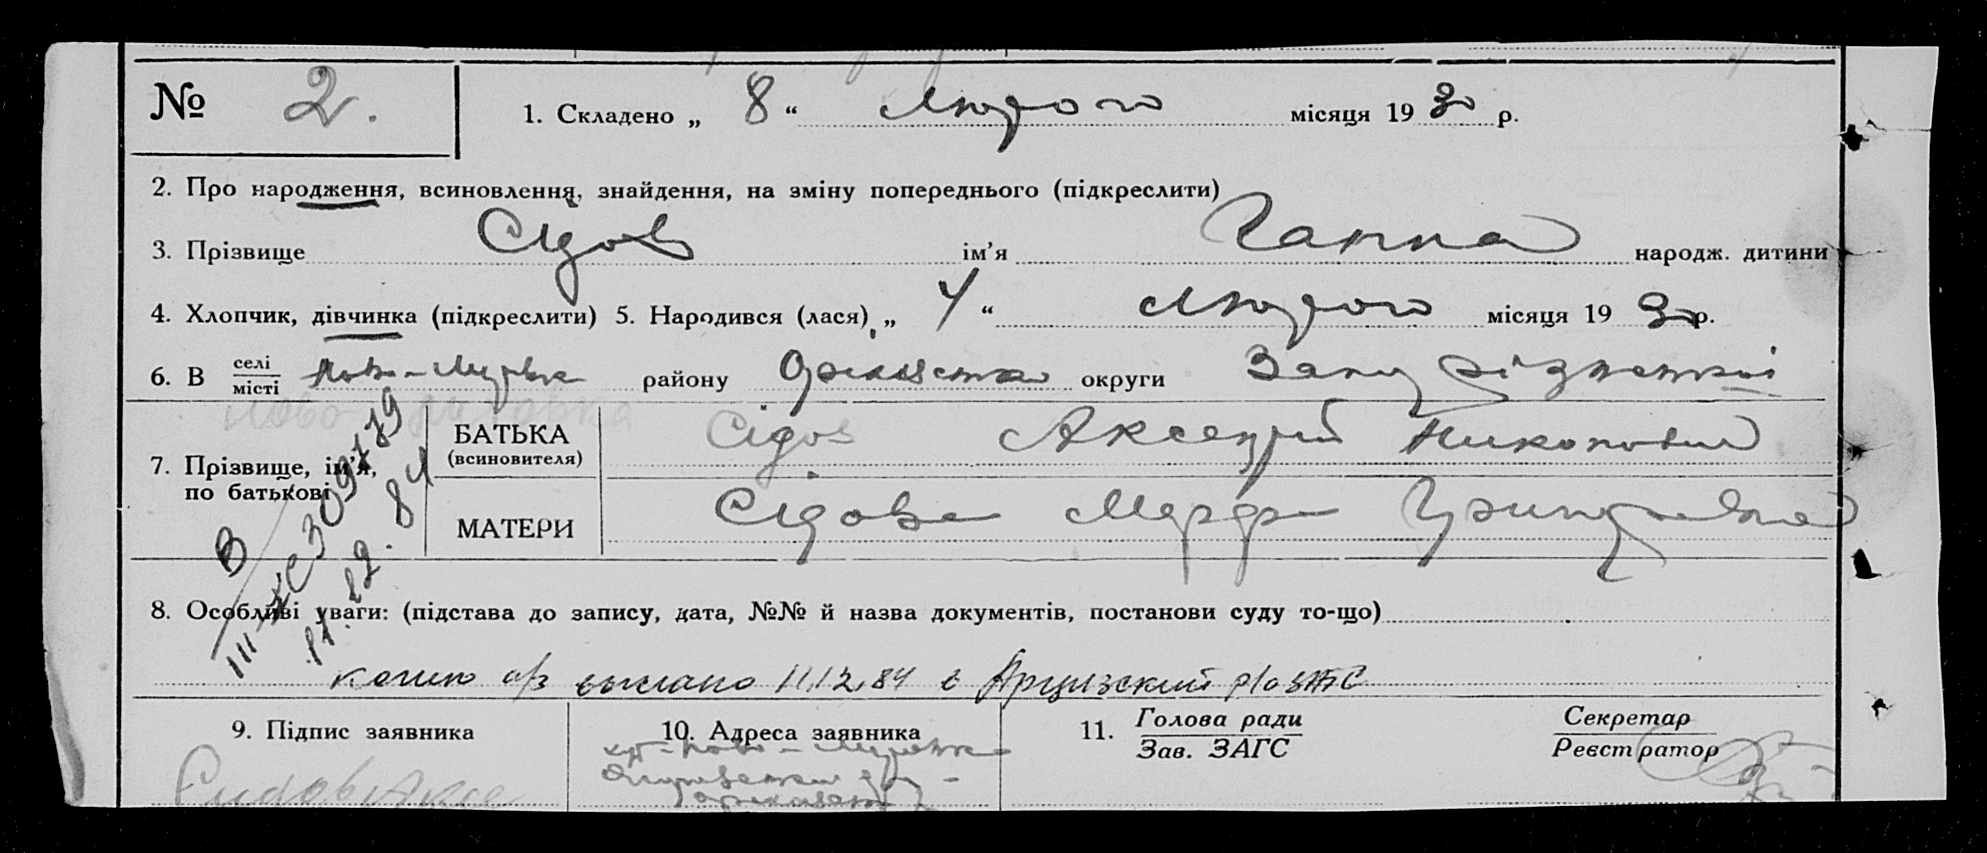 № 2. 1. Складено „ 8 “ Лютого місяця 19 30 р.
2. Про народження, всиновлення, знайдення, на зміну попереднього (підкреслити)
3. Прізвище Сідов ім'я Ганна народж. дитини
4. Хлопчик, дівчинка (підкреслити) 5. Народився (лася) „ 4 “ Лютого місяця 19 30 р.
6. В селі/місті Ново- району округи Запорізької
Ново-
7. Прізвище, ім'я, по батькові
БАТЬКА (всиновителя) Сідов Аксентій
МАТЕРИ Сідова
В
III-ЖС 309779
11.12.84
8. Особливі уваги: (підстава до запису, дата, №№ й назва документів, постанови суду то-що)
копию а/з выслано 11.12.84 в Арцизский р/о ЗАГС
9. Підпис заявника
Сидов Аксе
10. Адреса заявника
11. Голова ради/Зав. ЗАГС
Секретар/Реєстратор